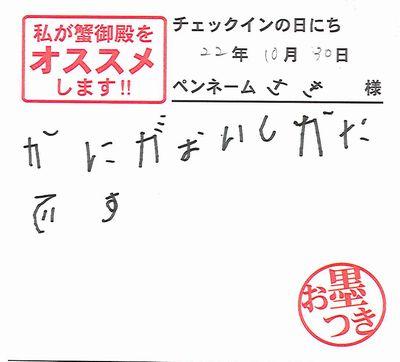 私が蟹御殿を
オススメ
します!!
チェックインの日にち
22年 10月 30日
ペンネーム さき 様
かにがおいしかた
です
お墨つき